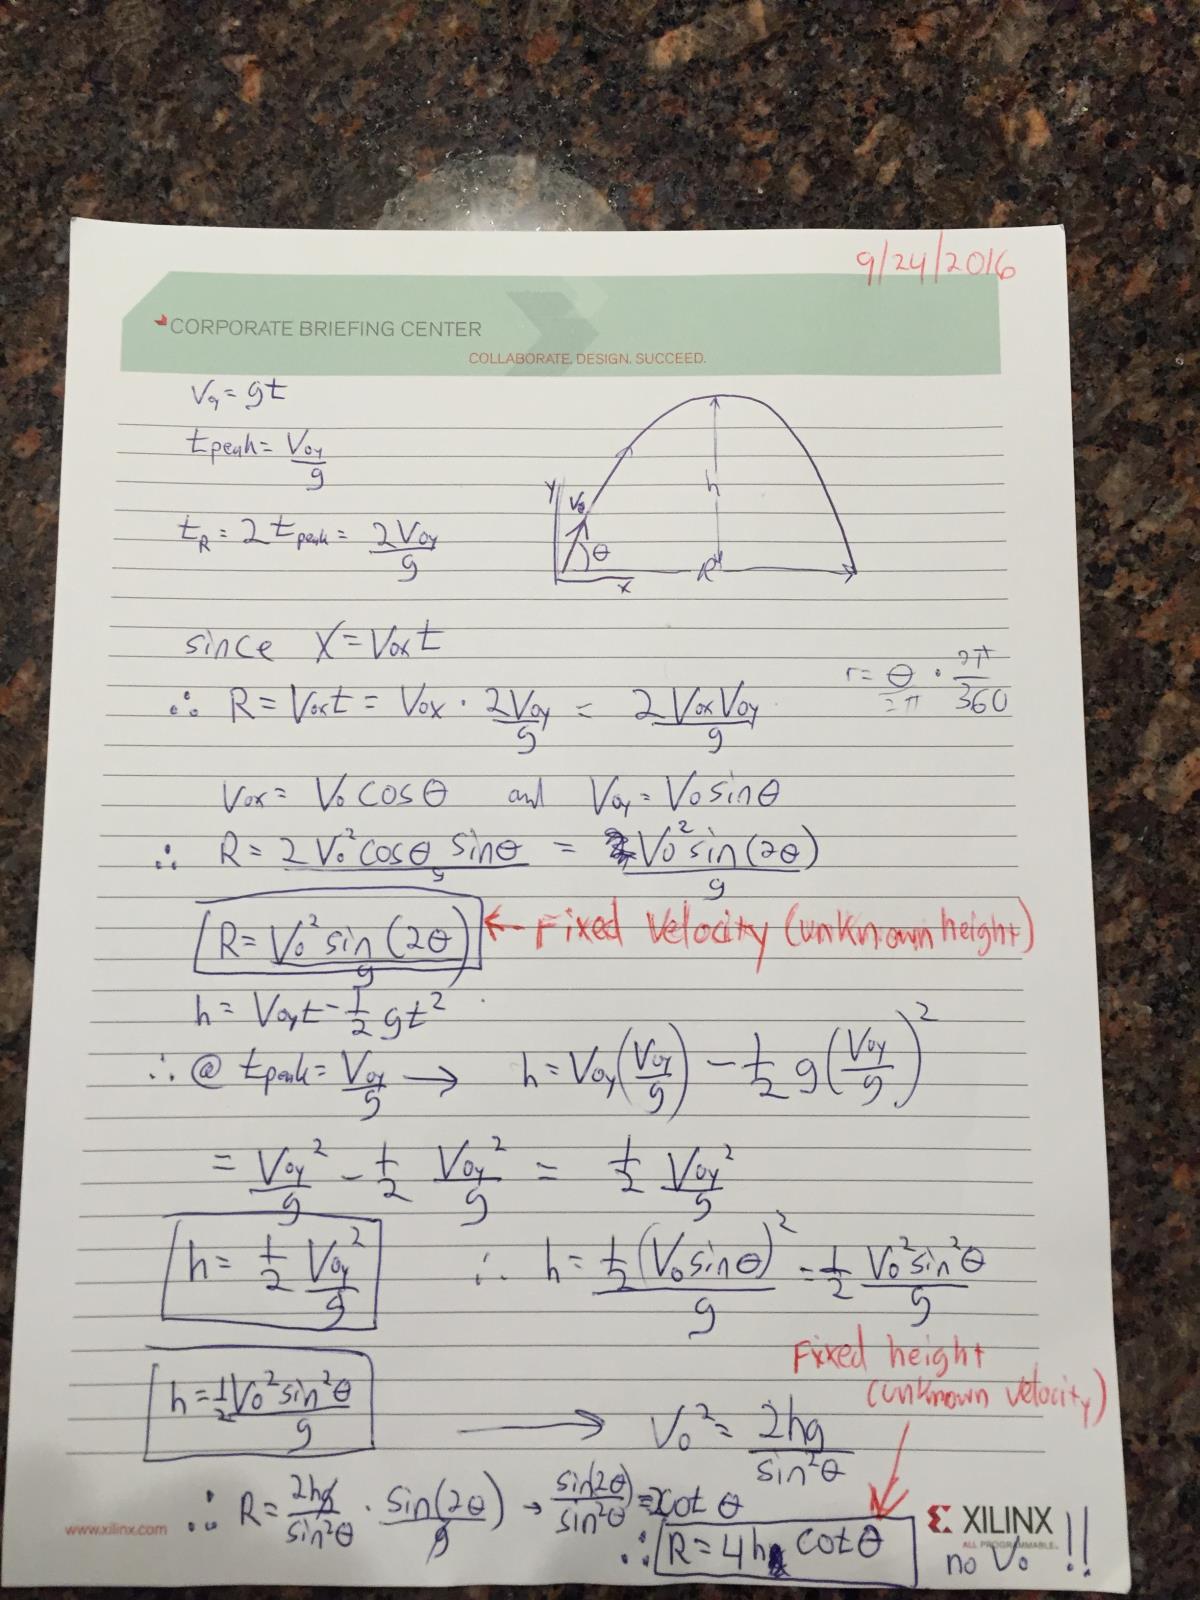 9/24/2016
CORPORATE BRIEFING CENTER
COLLABORATE. DESIGN. SUCCEED.
Vy = gt
tpeak = Voy/g
tR = 2 tpeak = 2Voy/g
y
Vo
θ
h
R
x
since X = Vox t
r = θ/2π · 2π/360
∴ R = Vox t = Vox · 2Voy/g = 2VoxVoy/g
Vox = Vo cosθ and Voy = Vo sinθ
∴ R = 2Vo² cosθ sinθ/g = Vo² sin(2θ)/g
R = Vo² sin(2θ)/g ← Fixed Velocity (unknown height)
h = Voy t - 1/2 gt²
∴ @ tpeak = Voy/g → h = Voy(Voy/g) - 1/2 g(Voy/g)²
= Voy²/g - 1/2 Voy²/g = 1/2 Voy²/g
h = 1/2 Voy²/g ∴ h = 1/2 (Vo sinθ)²/g = 1/2 Vo² sin²θ/g
Fixed height
(unknown velocity)
h = 1/2 Vo² sin²θ/g → Vo² = 2hg/sin²θ
∴ R = 2hg/sin²θ · sin(2θ)/g → sin(2θ)/sin²θ = 2cot θ
∴ R = 4h cot θ
no Vo !!
www.xilinx.com
XILINX
ALL PROGRAMMABLE.